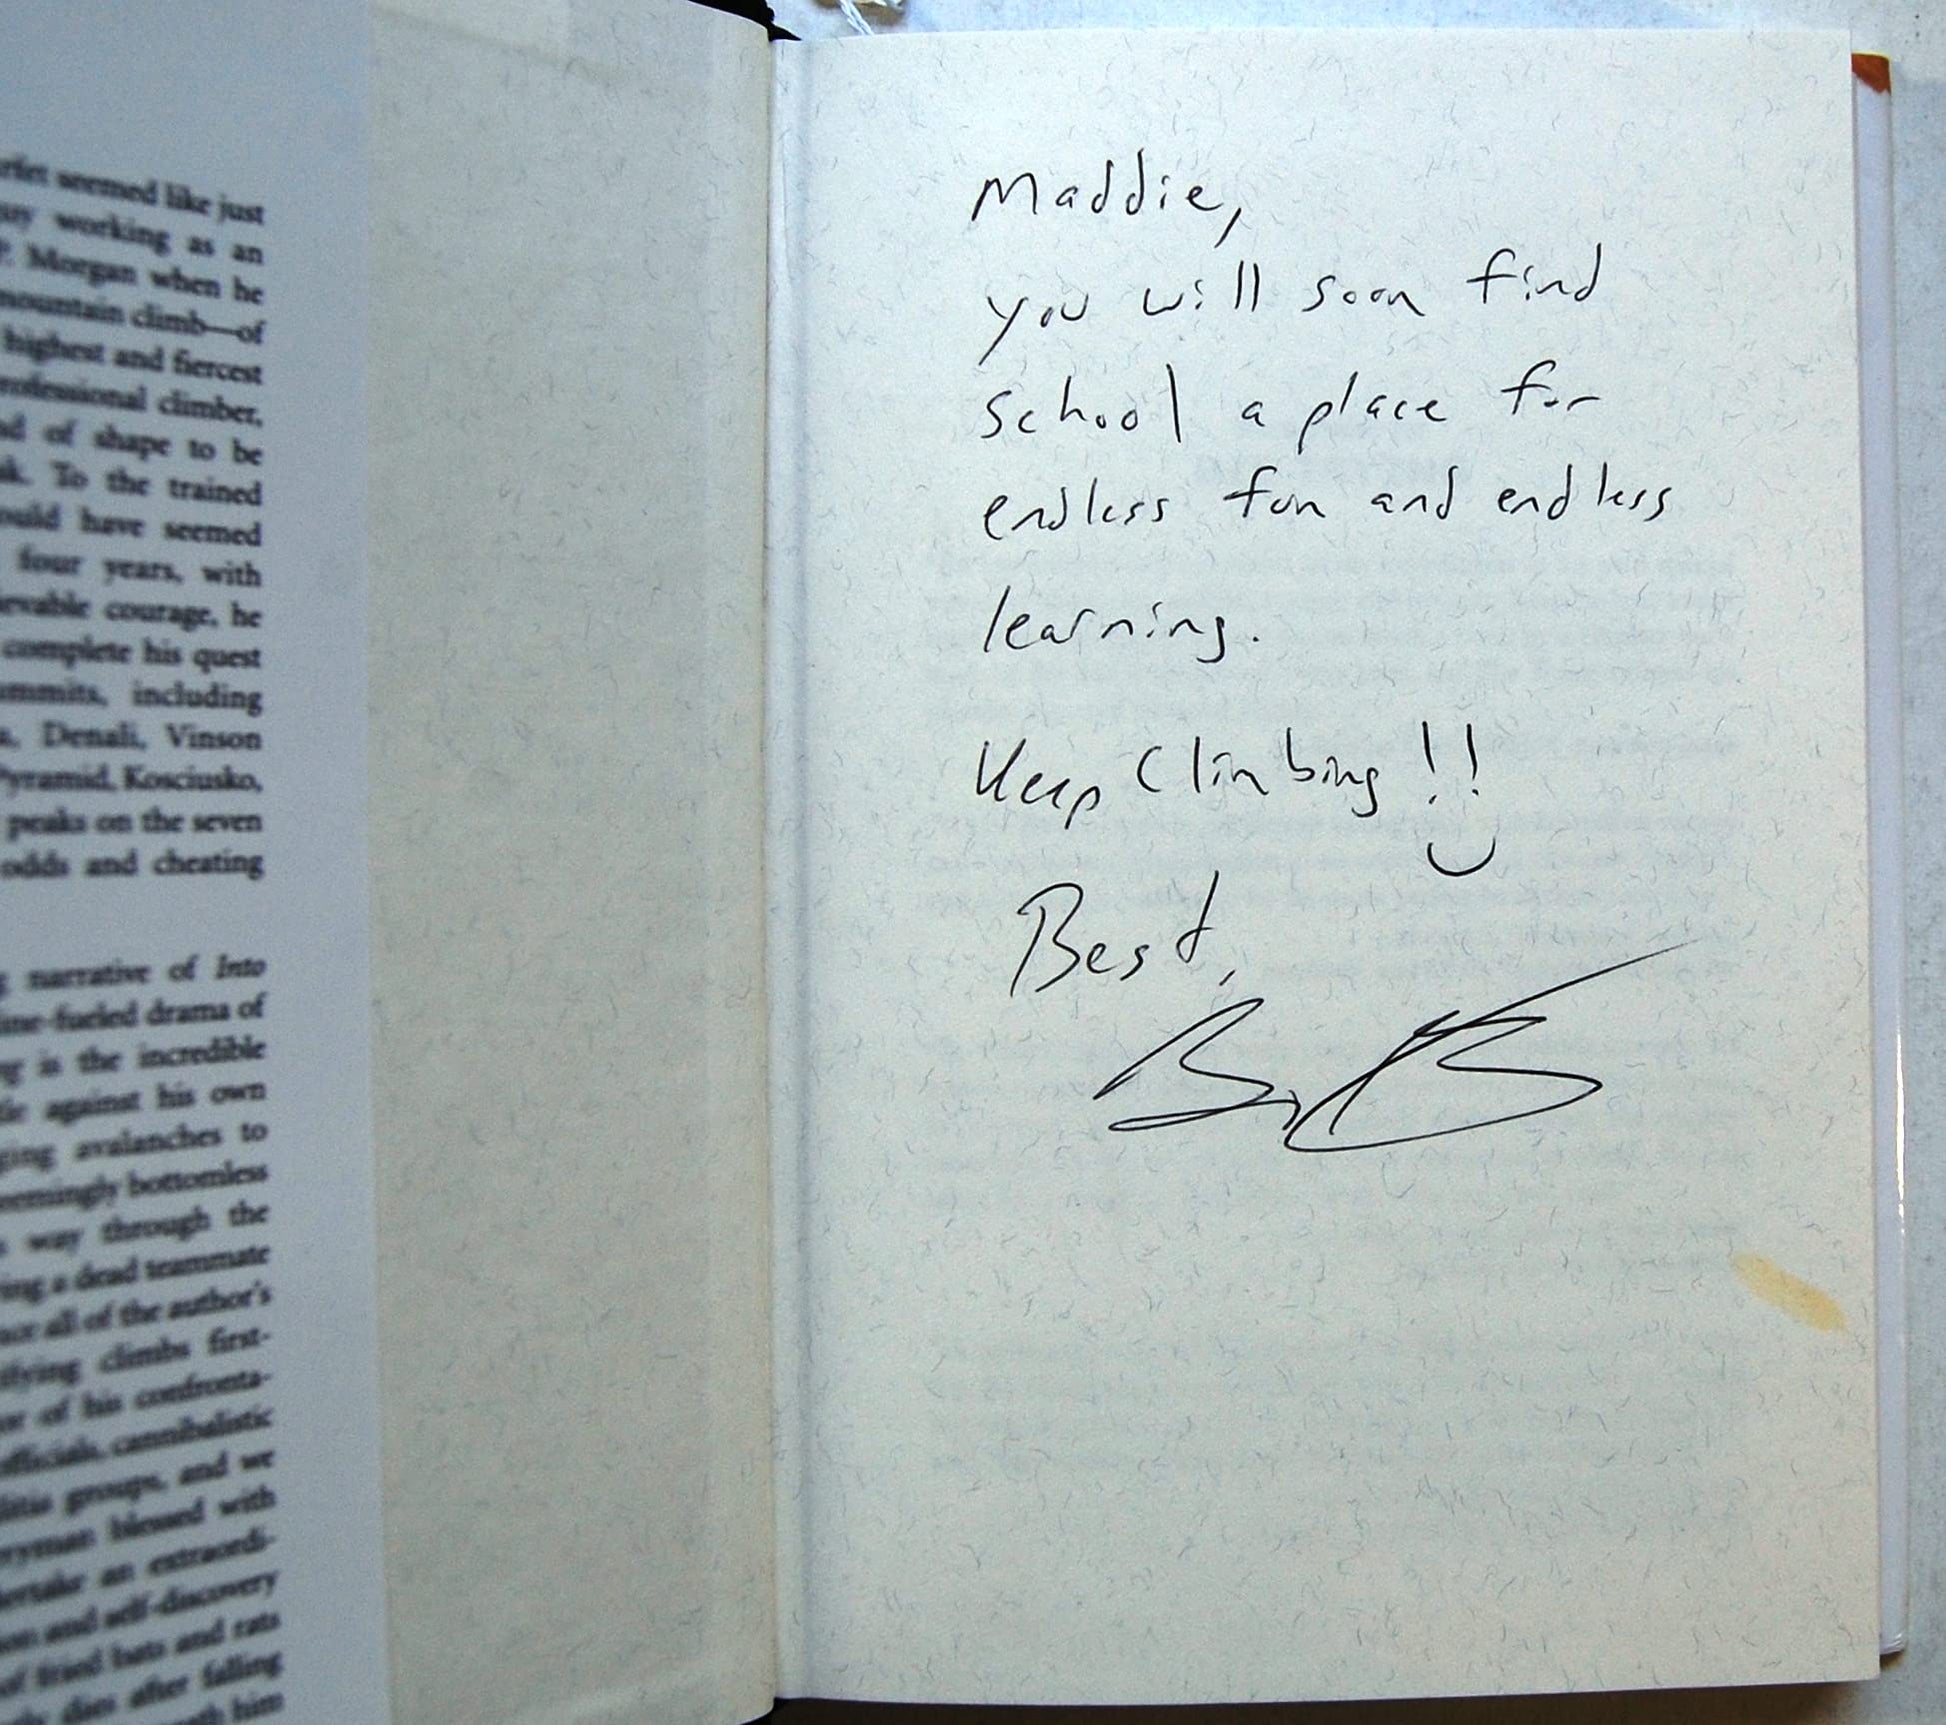 seemed like just
working as an
Morgan when he
mountain climb—of
highest and fiercest
professional climber,
of shape to be
To the trained
have seemed
four years, with
courage, he
complete his quest
including
Denali, Vinson
Pyramid, Kosciusko,
peaks on the seven
odds and cheating
narrative of Into
drama of
is the incredible
against his own
avalanches to
seemingly bottomless
way through the
a dead teammate
all of the author's
climbs first-
of his confronta-
officials, cannibalistic
groups, and we
blessed with
an extraordi-
and self-discovery
of fried bats and rats
dies after falling
him
Maddie,
you will soon find
school a place for
endless fun and endless
learning.
Keep Climbing!!
Best,